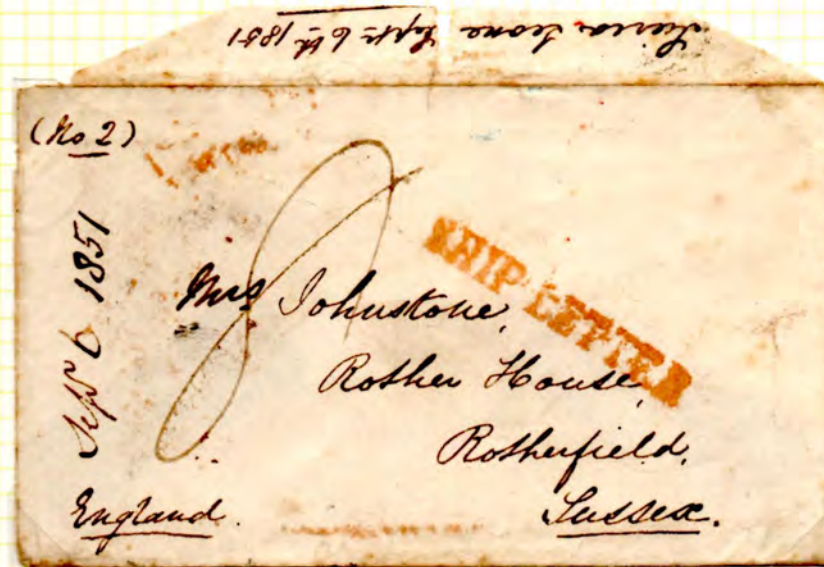 Sierra Leone Sept 6th 1851
(No 2)
Sept 6 1851
8
SHIP LETTER
Mrs Johnstone,
Rother House,
Rotherfield,
Sussex.
England.